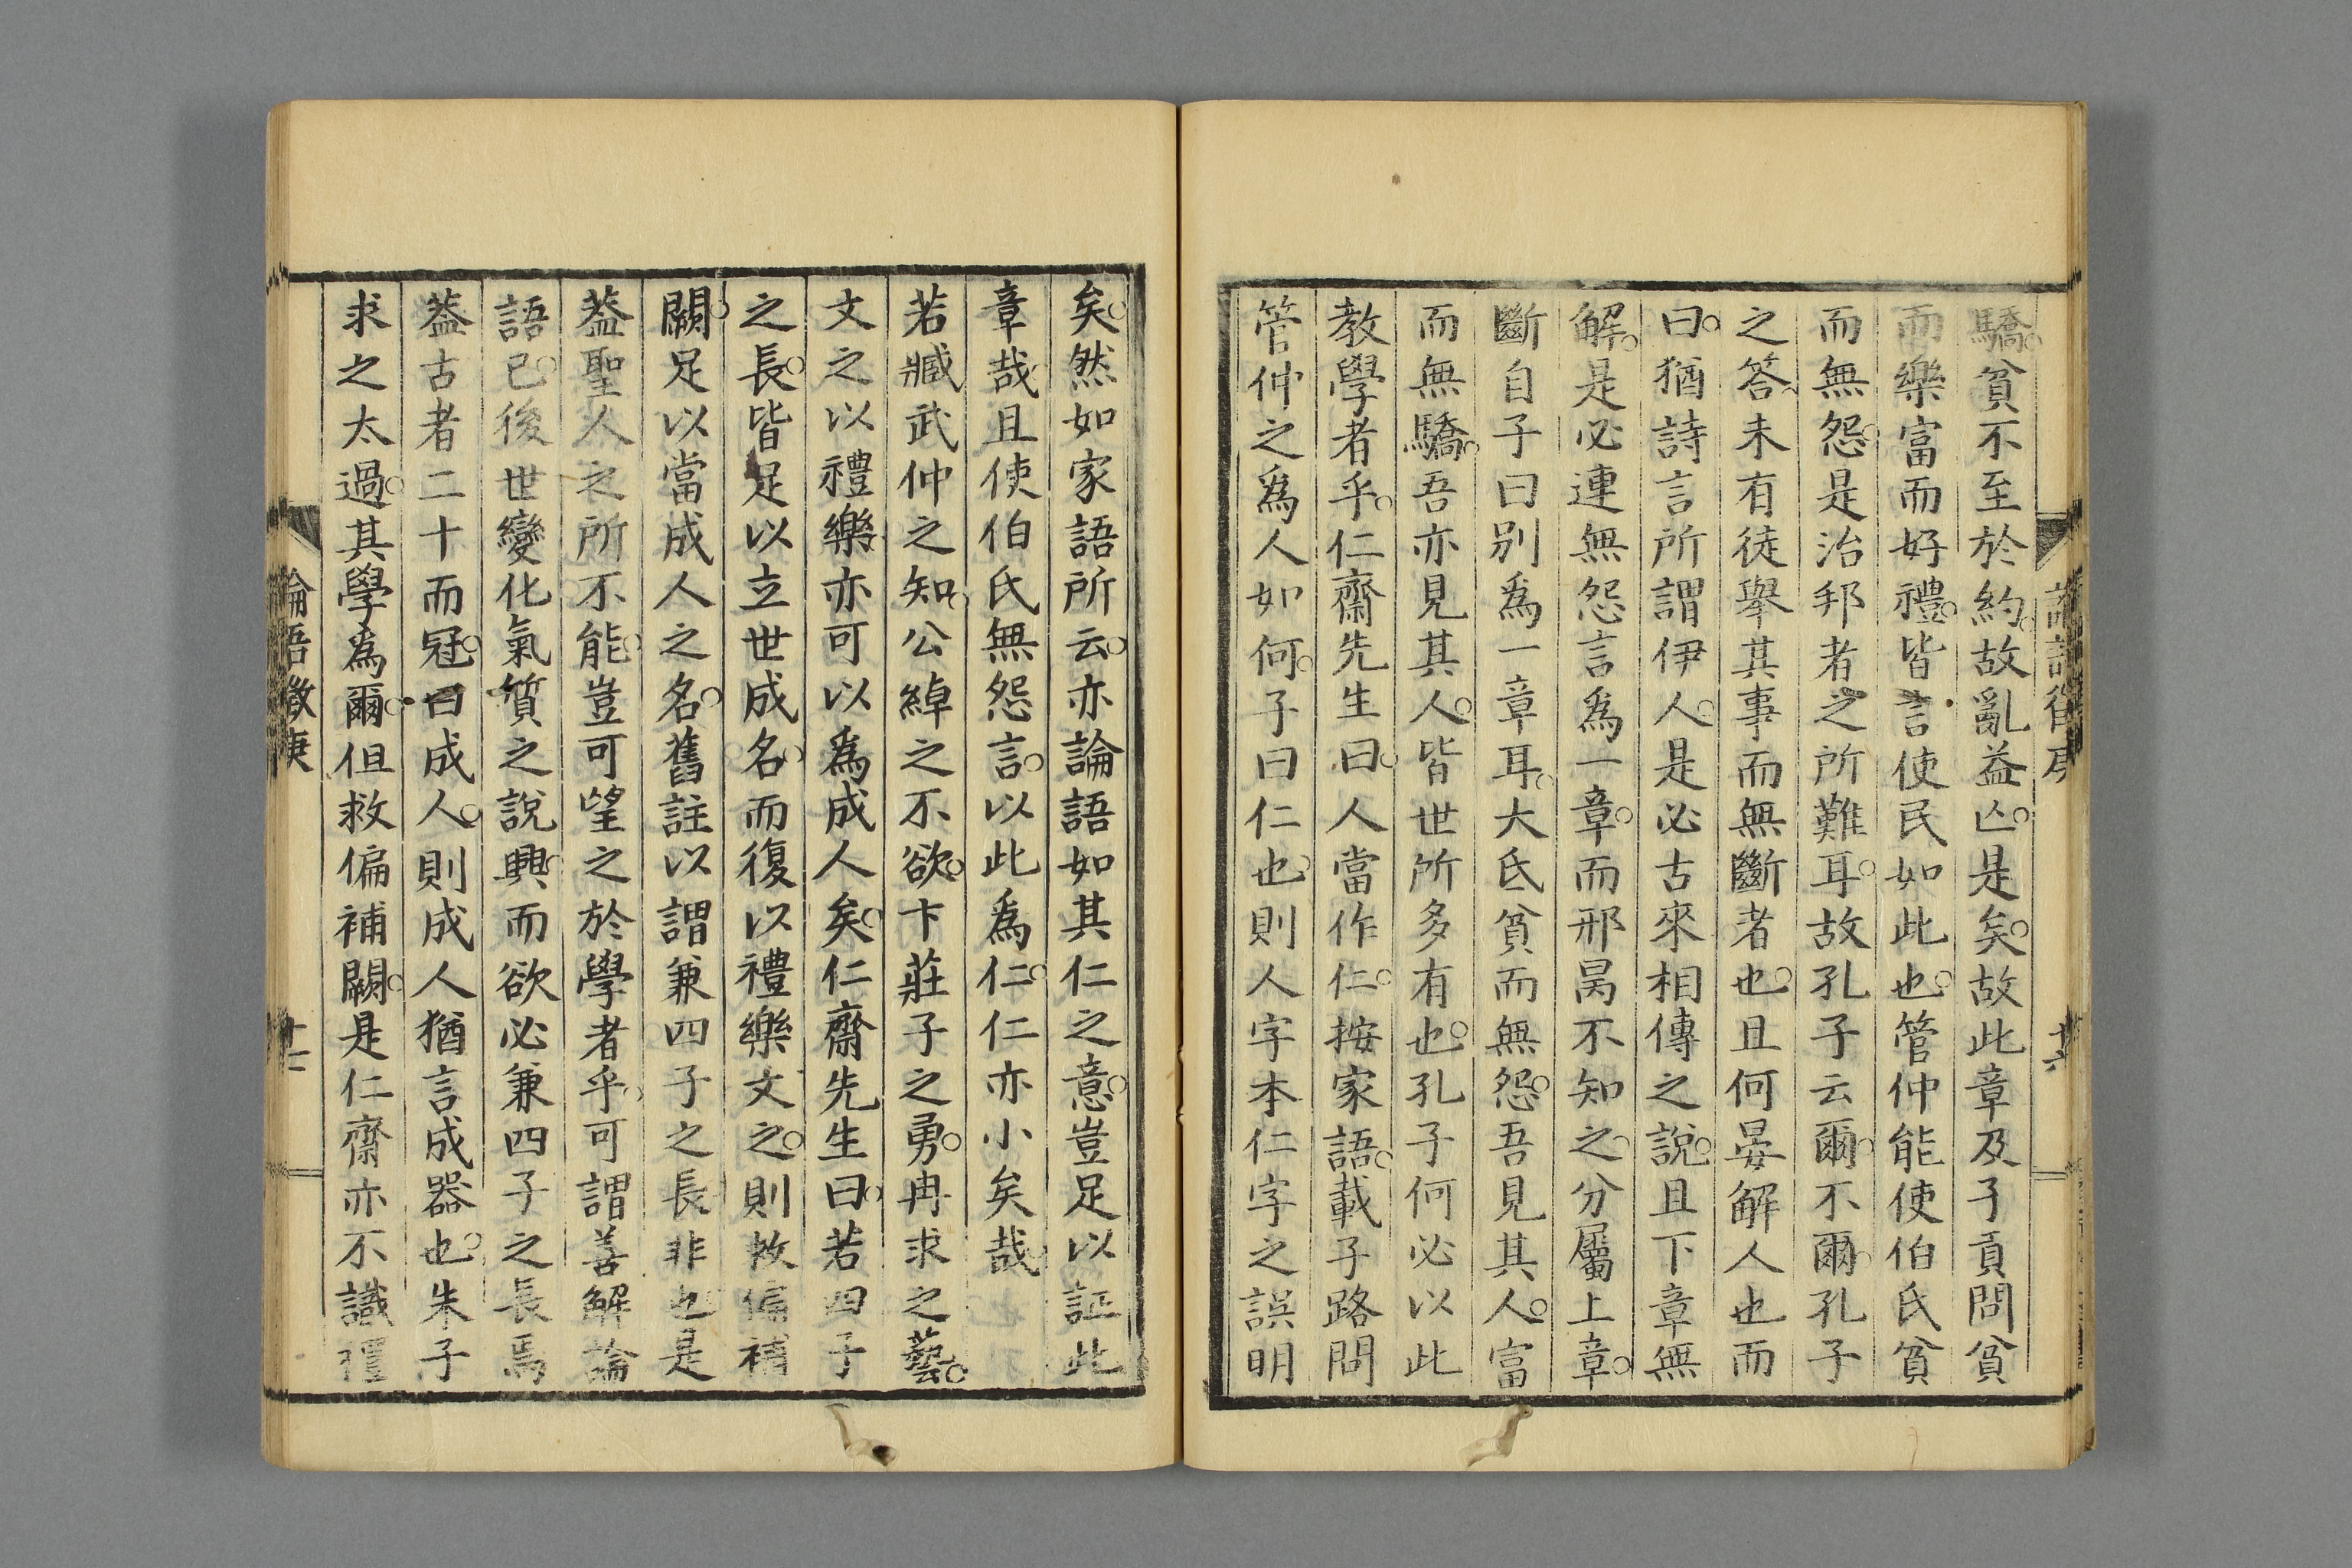 驕。貧不至於約。故亂益亾。是矣。故此章及子貢問貧
而樂富而好禮。皆言使民如此也。管仲能使伯氏貧
而無怨。是治邦者之所難耳。故孔子云爾。不爾。孔子
之答。未有徒舉其事而無斷者也。且何晏解人也而
曰。猶詩言所謂伊人。是必古來相傳之說。且下章無
解。是必連無怨言爲一章。而邢昺不知之。分屬上章。
斷自子曰別爲一章耳。大氐貧而無怨。吾見其人。富
而無驕。吾亦見其人。皆世所多有也。孔子何必以此
教學者乎。仁齋先生曰。人當作仁。按家語。載子路問
管仲之爲人如何。子曰仁也。則人字本仁字之誤明
矣。然如家語所云。亦論語如其仁之意。豈足以証此
章哉。且使伯氏無怨言。以此爲仁。仁亦小矣哉。
若臧武仲之知。公綽之不欲。卞莊子之勇。冉求之藝。
文之以禮樂。亦可以爲成人矣。仁齋先生曰。若四子
之長。皆足以立世成名。而復以禮樂文之。則救偏補
闕。足以當成人之名。舊註以謂兼四子之長非也。是
葢聖人之所不能。豈可望之於學者乎。可謂善解論
語已。後世變化氣質之說興。而欲必兼四子之長焉
葢古者二十而冠。曰成人。則成人猶言成器也。朱子
求之太過。其學爲爾。但救偏補闕。是仁齋亦不識禮
論語徵庚